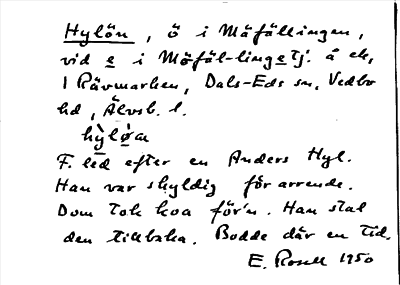 Hylön, ö i Mäfällingen,
vid e i Mäfäl-lingetj. å ek,
1 Rävmarken, Dals-Eds sn, Vedbo
hd, Älvsb. l.
hỳlø̀a
F. led efter en Anders Hyl.
Han var skyldig för arrende.
Dom tok koa för'n. Han stal
den tillbaka. Bodde där en tid.
E. Rosell 1950